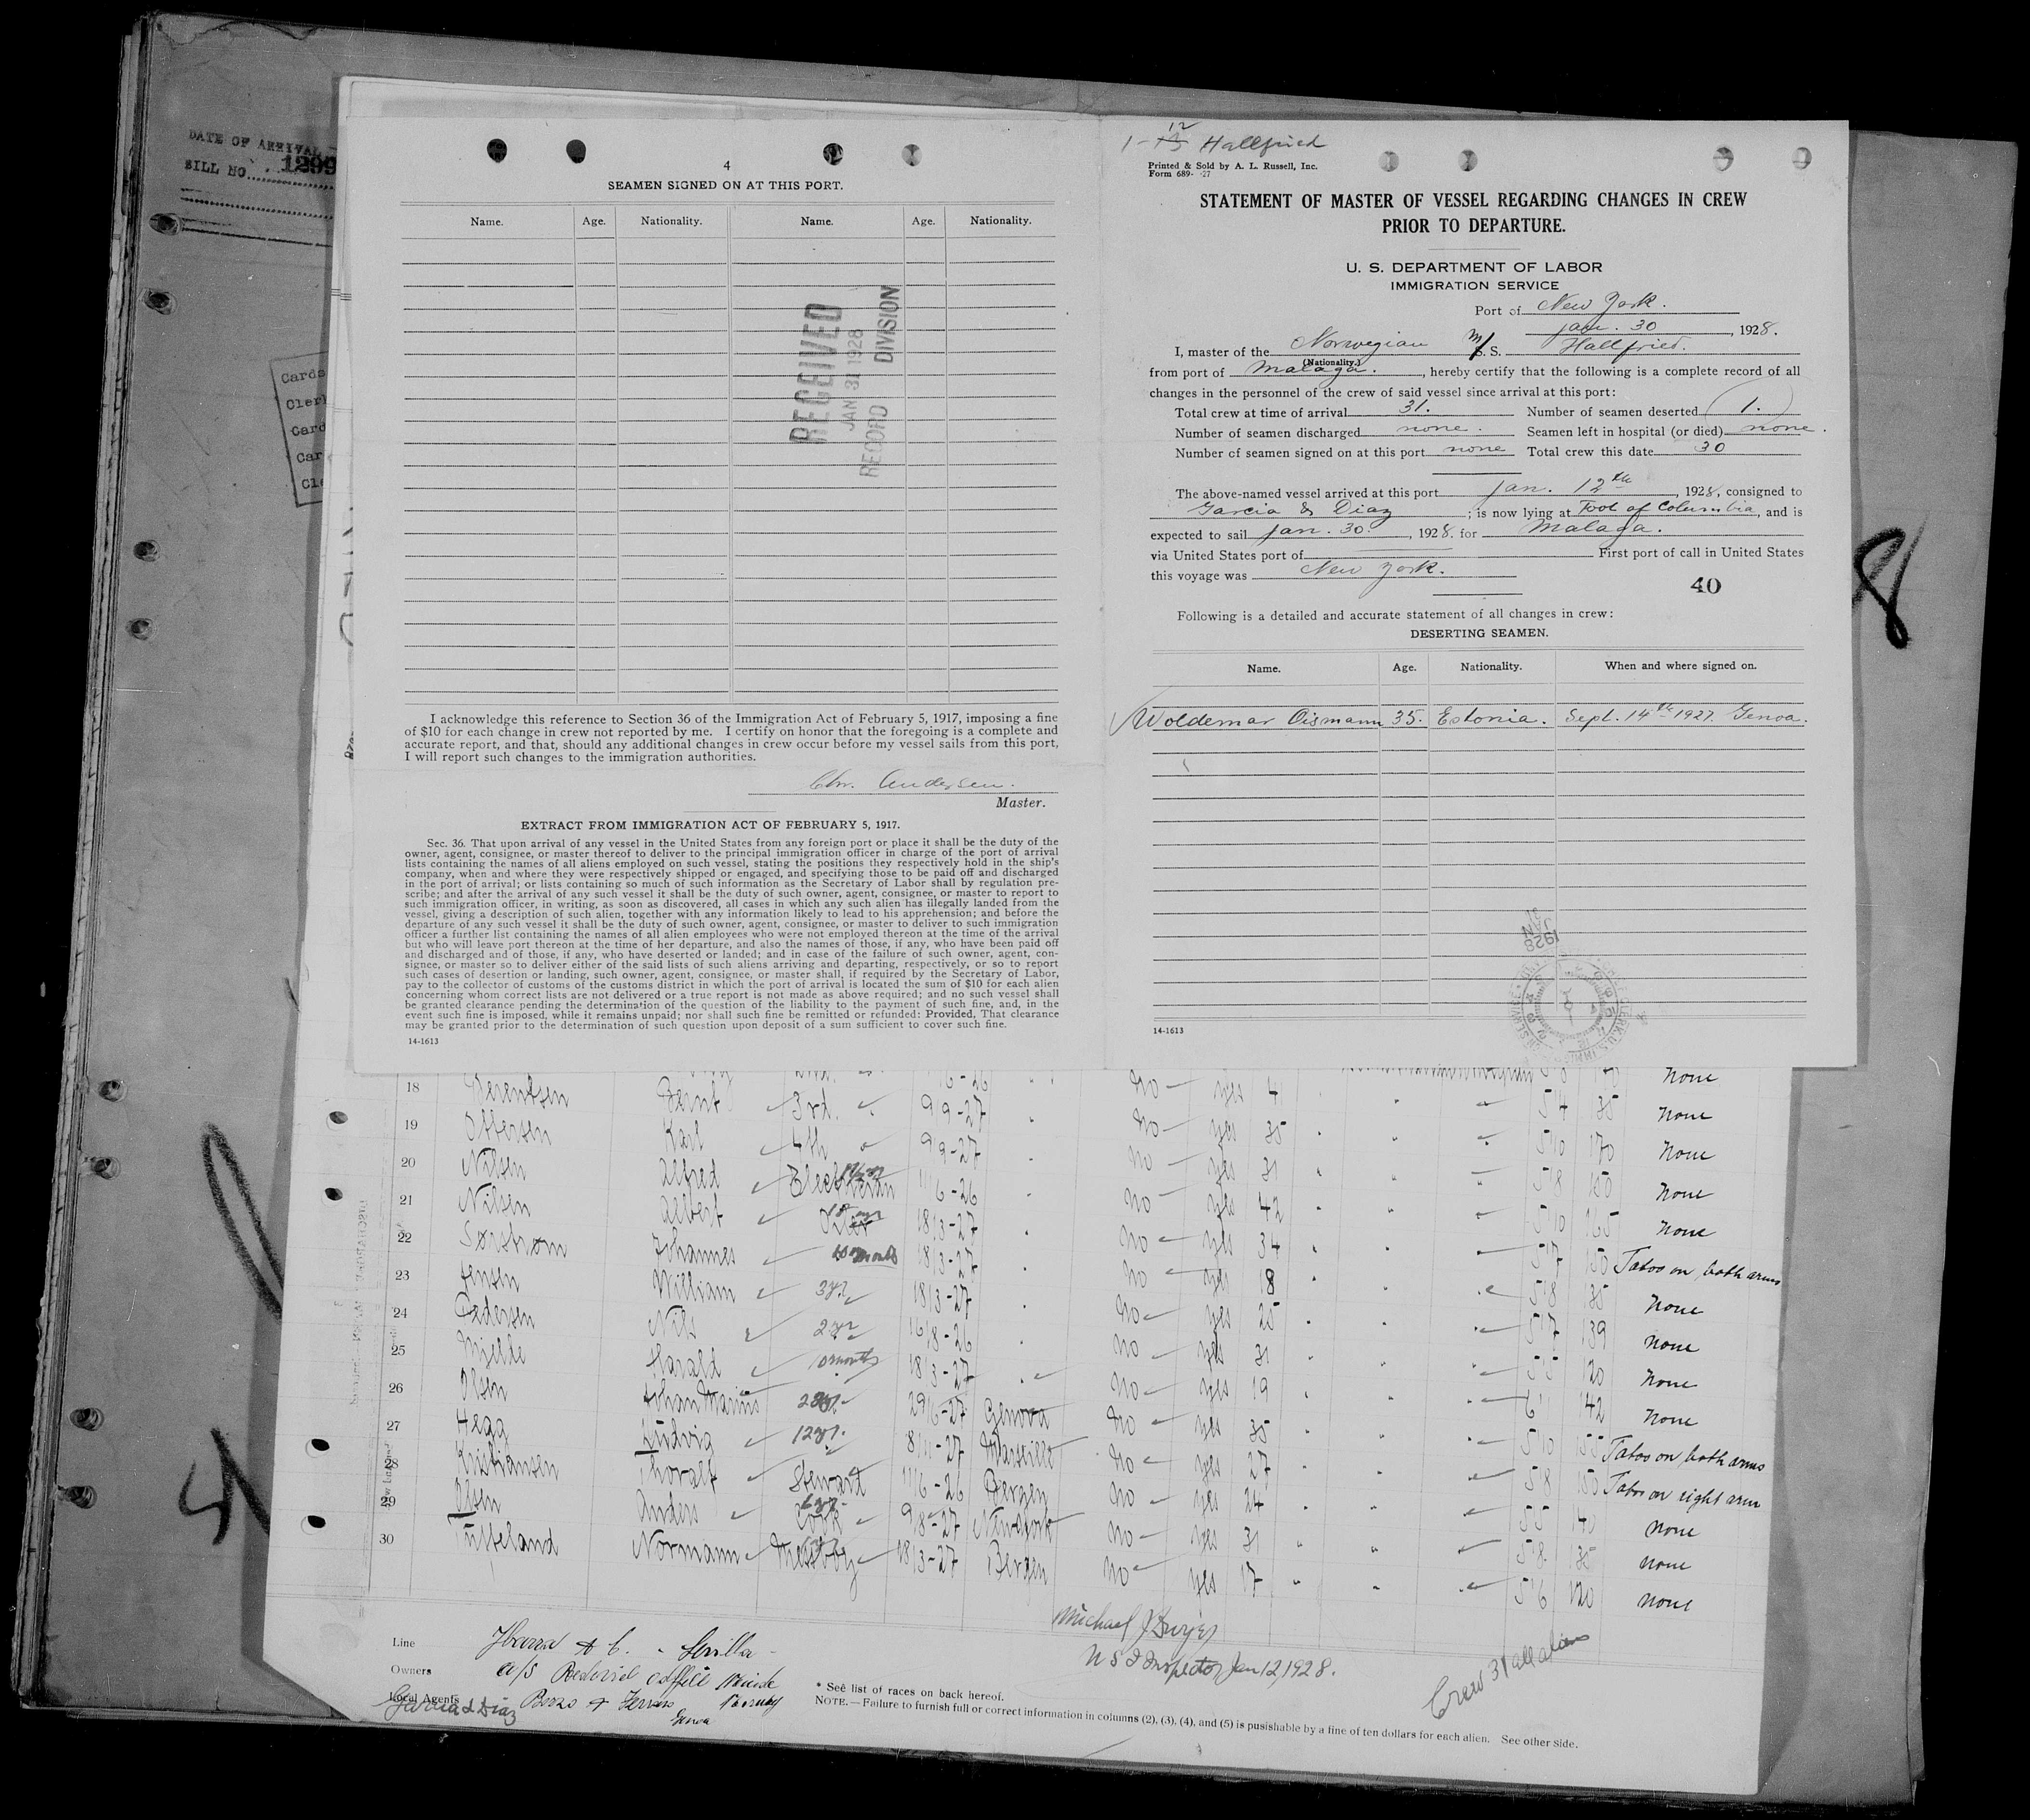 DATE OF ARRIVAL
BILL NO. 1299
Cards
Clerk
Card
Car
Cle
4
SEAMEN SIGNED ON AT THIS PORT.
Name. Age. Nationality. Name. Age. Nationality.
RECEIVED
JAN 31 1928
RECORD DIVISION
I acknowledge this reference to Section 36 of the Immigration Act of February 5, 1917, imposing a fine
of $10 for each change in crew not reported by me. I certify on honor that the foregoing is a complete and
accurate report, and that, should any additional changes in crew occur before my vessel sails from this port,
I will report such changes to the immigration authorities.
Chr. Andersen.
Master.
EXTRACT FROM IMMIGRATION ACT OF FEBRUARY 5, 1917.
Sec. 36. That upon arrival of any vessel in the United States from any foreign port or place it shall be the duty of the
owner, agent, consignee, or master thereof to deliver to the principal immigration officer in charge of the port of arrival
lists containing the names of all aliens employed on such vessel, stating the positions they respectively hold in the ship's
company, when and where they were respectively shipped or engaged, and specifying those to be paid off and discharged
in the port of arrival; or lists containing so much of such information as the Secretary of Labor shall by regulation pre-
scribe; and after the arrival of any such vessel it shall be the duty of such owner, agent, consignee, or master to report to
such immigration officer, in writing, as soon as discovered, all cases in which any such alien has illegally landed from the
vessel, giving a description of such alien, together with any information likely to lead to his apprehension; and before the
departure of any such vessel it shall be the duty of such owner, agent, consignee, or master to deliver to such immigration
officer a further list containing the names of all alien employees who were not employed thereon at the time of the arrival
but who will leave port thereon at the time of her departure, and also the names of those, if any, who have been paid off
and discharged and of those, if any, who have deserted or landed; and in case of the failure of such owner, agent, con-
signee, or master so to deliver either of the said lists of such aliens arriving and departing, respectively, or so to report
such cases of desertion or landing, such owner, agent, consignee, or master shall, if required by the Secretary of Labor,
pay to the collector of customs of the customs district in which the port of arrival is located the sum of $10 for each alien
concerning whom correct lists are not delivered or a true report is not made as above required; and no such vessel shall
be granted clearance pending the determination of the question of the liability to the payment of such fine, and, in the
event such fine is imposed, while it remains unpaid; nor shall such fine be remitted or refunded: Provided, That clearance
may be granted prior to the determination of such question upon deposit of a sum sufficient to cover such fine.
14-1613
1-12 Hallfried
Printed & Sold by A. L. Russell, Inc.
Form 689- -27
STATEMENT OF MASTER OF VESSEL REGARDING CHANGES IN CREW
PRIOR TO DEPARTURE.
U. S. DEPARTMENT OF LABOR
IMMIGRATION SERVICE
Port of New York.
Jan. 30, 1928.
I, master of the Norwegian M/S. S. Hallfried.
(Nationality.)
from port of Malaga., hereby certify that the following is a complete record of all
changes in the personnel of the crew of said vessel since arrival at this port:
Total crew at time of arrival 31. Number of seamen deserted (1.)
Number of seamen discharged none. Seamen left in hospital (or died) none.
Number of seamen signed on at this port none Total crew this date 30
The above-named vessel arrived at this port Jan. 12th, 1928, consigned to
Garcia & Diaz; is now lying at Foot of Columbia, and is
expected to sail Jan. 30., 1928. for Malaga.
via United States port of First port of call in United States
this voyage was New York.
40
Following is a detailed and accurate statement of all changes in crew:
DESERTING SEAMEN.
Name. Age. Nationality. When and where signed on.
Woldemar Oismann 35. Estonia. Sept. 14th 1927. Genoa.
JAN 1928
14-1613
8
18 Berentsen Bernt 3rd. 9 9-27 no yes 5 4 None
19 Ottersen Karl 4th 9 9-27 no yes 35 5 10 170 None
20 Nilsen Alfred 11 6-26 no yes 31 5 8 None
21 Nilsen Albert 18 3-27 no yes 42 5 10 165 None
22 Johannes 18 3-27 no yes 34 5 7 150 Tatoo on both arms
23 Jensen William 3yr 18 3-27 no yes 18 5 8 135 None
24 Pedersen Nils 2yr 16 8-26 no yes 25 5 7 139 None
25 Mjelde Harald 10 months 18 3-27 no yes 31 5 120 None
26 Olsen Johan Marius 29 6-27 Genova no yes 19 6 142 None
27 Hegg Ludvig 12yr. 8 11-27 Marseille no yes 35 5 10 Tatoo on both arms
28 Kristiansen Thoralf Steward 11 6-26 Bergen no yes 27 5 8 150 Tatoo on right arm
29 Olsen Anders Cook 9 8-27 New York no yes 24 5 5 140 none
30 Tusseland Normann Messboy 18 3-27 Bergen no yes 31 5 8 135 none
yes 17 5 6 120 none
Line Ybarra & C. - Sevilla
Owners a/s Rederiet
Local Agents Garcia & Diaz
Genoa
Michael J Dwyer
U S I Inspector Jan 12, 1928.
Crew 31 all aliens
* See list of races on back hereof.
NOTE.—Failure to furnish full or correct information in columns (2), (3), (4), and (5) is punishable by a fine of ten dollars for each alien. See other side.